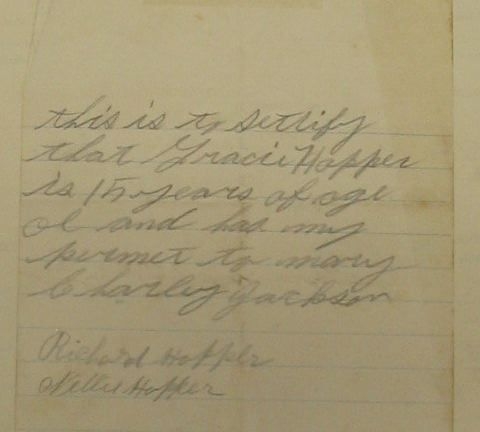 this is to setlify
that Gracie Hopper
is 15 years of age
ol and has my
permet to mary
Charley Jackson
Richard Hopper
Nellie Hopper